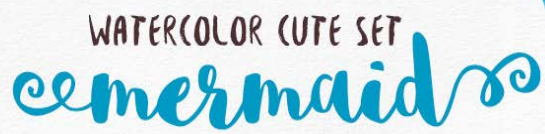 WATERCOLOR CUTE SET
mermaid